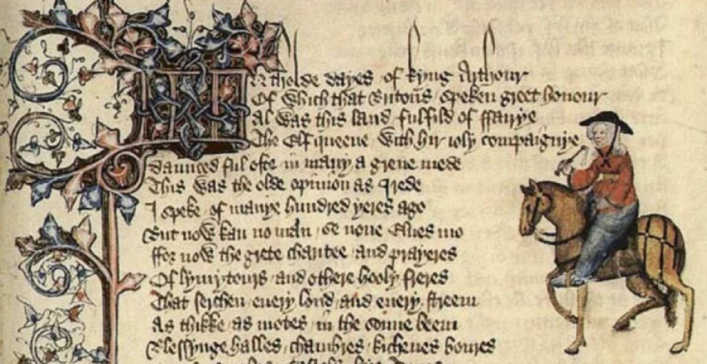 IN tholde dayes of kyng Arthour
Of which that Britons speken greet honour
Al was this land fulfild of ffairye
The Elf queene with hir ioly compaignye
Daunced ful ofte in many a grene mede
This was the olde opinion as I rede
I speke of manye hundred yeres ago
But now kan no man se none Elues mo
ffor now the grete charitee and prayeres
Of lymytours and othere hooly freres
That serchen euery lond and euery streem
As thikke as motes in the sonne beem
Blessynge halles chambres kichenes boures